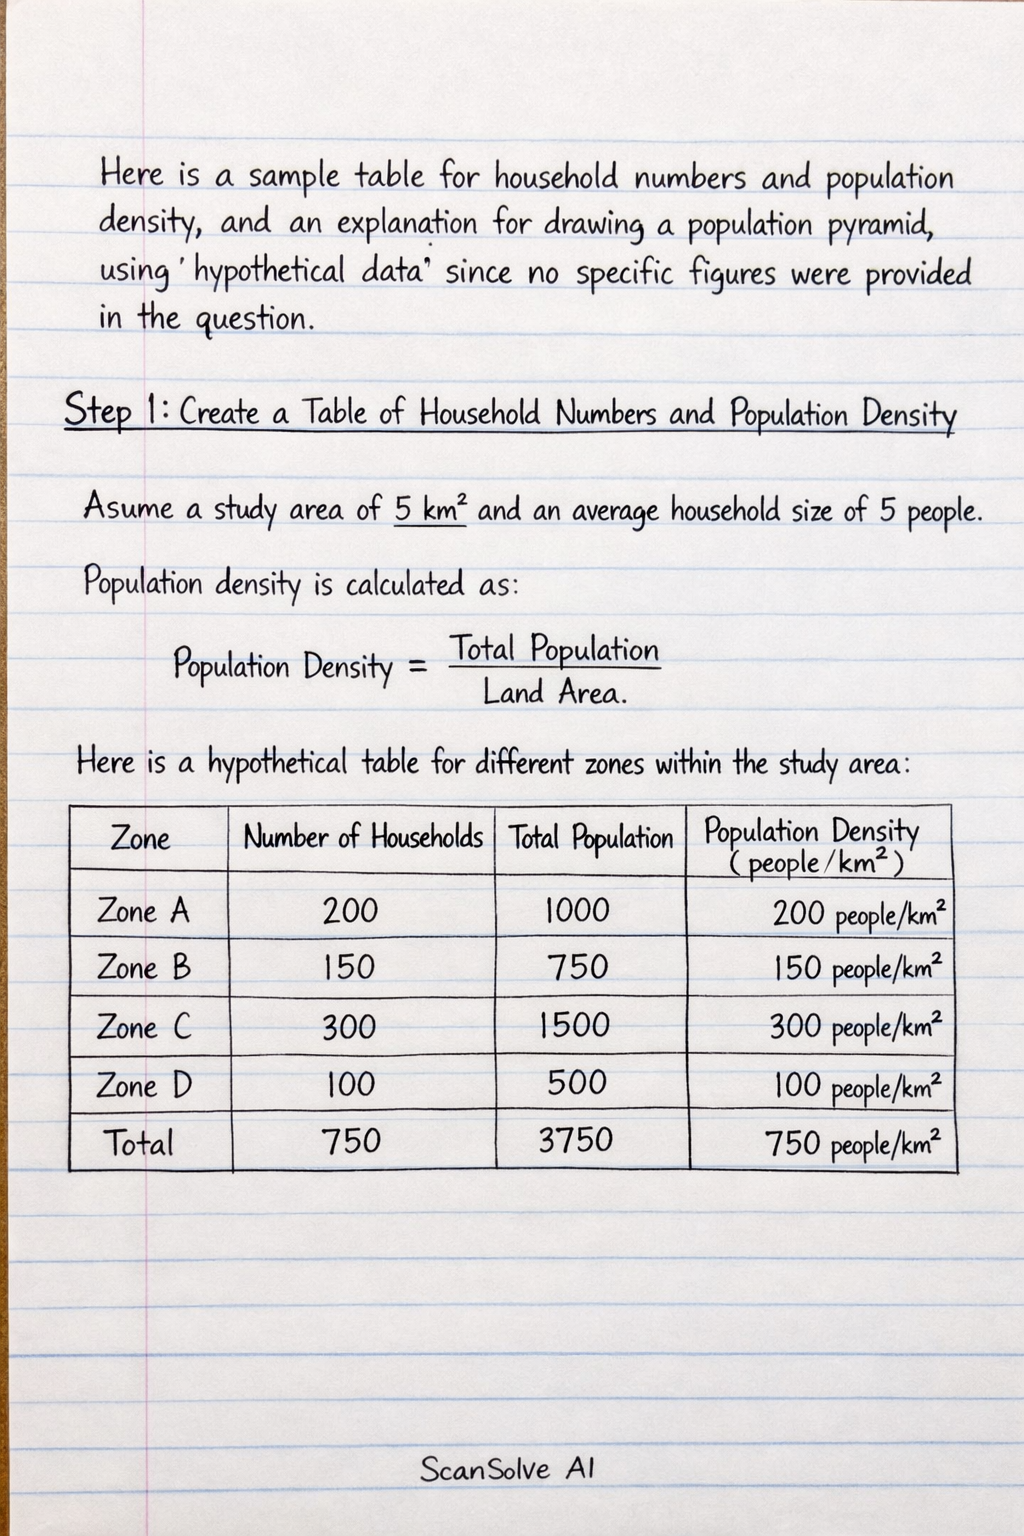 Here is a sample table for household numbers and population
density, and an explanation for drawing a population pyramid,
using 'hypothetical data' since no specific figures were provided
in the question.
Step 1: Create a Table of Household Numbers and Population Density
Asume a study area of 5 km² and an average household size of 5 people.
Population density is calculated as:
Population Density = Total Population / Land Area.
Here is a hypothetical table for different zones within the study area:
Zone Number of Households Total Population Population Density (people/km²)
Zone A 200 1000 200 people/km²
Zone B 150 750 150 people/km²
Zone C 300 1500 300 people/km²
Zone D 100 500 100 people/km²
Total 750 3750 750 people/km²
ScanSolve AI